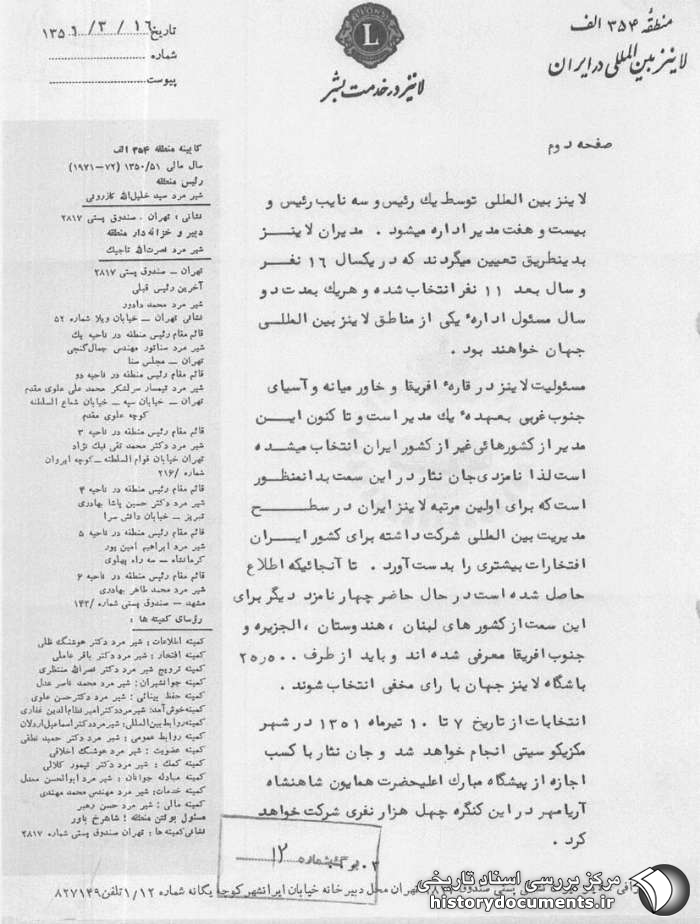 منطقهٔ ۳۵۴ الف
لاینز بین المللی در ایران
لاینز در خدمت بشر
L
تاریخ ۱۶ / ۳ / ۱۳۵۱
شماره
پیوست
صفحه دوم
لاینز بین المللی توسط یك رئیس و سه نایب رئیس و
بیست و هفت مدیر اداره میشود . مدیران لاینز
بدینطریق تعیین میگردند که در یکسال ۱۶ نفر
و سال بعد ۱۱ نفر انتخاب شده و هر یك بمدت دو
سال مسئول ادارهٔ یکی از مناطق لاینز بین المللی
جهان خواهند بود .
مسئولیت لاینز در قارهٔ افریقا و خاور میانه و آسیای
جنوب غربی بعهدهٔ یك مدیر است و تا کنون این
مدیر از کشورهائی غیر از کشور ایران انتخاب میشده
است لذا نامزدی جان نثار در این سمت بدانمنظور
است که برای اولین مرتبه لاینز ایران در سطح
مدیریت بین المللی شرکت داشته برای کشور ایران
افتخارات بیشتری را بدست آورد . تا آنجائیکه اطلاع
حاصل شده است در حال حاضر چهار نامزد دیگر برای
این سمت از کشور های لبنان ، هندوستان ، الجزیره و
جنوب افریقا معرفی شده اند و باید از طرف ۲۵٫۵۰۰
باشگاه لاینز جهان با رای مخفی انتخاب شوند .
انتخابات از تاریخ ۷ تا ۱۰ تیرماه ۱۳۵۱ در شهر
مکزیکو سیتی انجام خواهد شد و جان نثار با کسب
اجازه از پیشگاه مبارك اعلیحضرت همایون شاهنشاه
آریامهر در این کنگره چهل هزار نفری شرکت خواهد
کرد .
کابینه منطقه ۳۵۴ الف
سال مالی ۱۳۵۰/۵۱ (۱۹۷۱–۷۲)
رئیس منطقه
شیر مرد سید خلیل‌الله کازرونی
نشانی : تهران . صندوق پستی ۲۸۱۷
دبیر و خزانه‌دار منطقه
شیر مرد نصرت‌الله تاجیك
تهران – صندوق پستی ۲۸۱۷
آخرین رئیس قبلی
شیر مرد محمد دادور
نشانی تهران – خیابان ویلا شماره ۵۲
قائم مقام رئیس منطقه در ناحیه یك
شیر مرد سناتور مهندس جمال گنجی
تهران – مجلس سنا
قائم مقام رئیس منطقه در ناحیه دو
شیر مرد تیمسار سرلشکر محمد علی علوی مقدم
تهران – خیابان سپه – خیابان شعاع السلطنه
کوچه علوی مقدم
قائم مقام رئیس منطقه در ناحیه ۳
شیر مرد دکتر محمد تقی نیك نژاد
تهران خیابان قوام السلطنه – کوچه ایروان
شماره ۲۱۶/
قائم مقام رئیس منطقه در ناحیه ۴
شیر مرد دکتر حسین پاشا بهادری
تبریز – خیابان دانش سرا
قائم مقام رئیس منطقه در ناحیه ۵
شیر مرد ابراهیم امین پور
کرمانشاه – سه راه پهلوی
قائم مقام رئیس منطقه در ناحیه ۶
شیر مرد محمد طاهر بهادری
مشهد – صندوق پستی شماره ۱۴۲/
رؤسای کمیته ها :
کمیته اطلاعات : شیر مرد دکتر هوشنگ ظلی
کمیته افتخار : شیر مرد دکتر باقر عاملی
کمیته ترویج شیر مرد دکتر نصرالله منتظری
کمیته جوانشیران : شیر مرد محمد ناصر عدل
کمیته حفظ بینائی : شیر مرد دکتر حسن علوی
کمیته خوش‌آمد: شیرمرد دکتر امیر نظام‌الدین غفاری
کمیته روابط بین‌المللی: شیرمرد دکتر اسماعیل اردلان
کمیته روابط عمومی : شیر مرد دکتر حمید نطقی
کمیته عضویت : شیر مرد هوشنگ اخلاقی
کمیته کمك : شیر مرد دکتر تیمور کلالی
کمیته مبادله جوانان : شیر مرد ابوالحسن معدل
کمیته خدمات: شیر مرد مهندس محمد مهندی
کمیته مالی : شیر مرد حسن رهبر
مسئول بولتن منطقه : شاهرخ یاور
نشانی کمیته ها : تهران صندوق پستی شماره ۲۸۱۷
برگ شماره ۱۲
پستی صندوق تهران محل دبیرخانه خیابان ایرانشهر کوچه یگانه شماره ۱/۱۲ تلفن ۸۲۷۱۴۹
مرکز بررسی اسناد تاریخی
historydocuments.ir